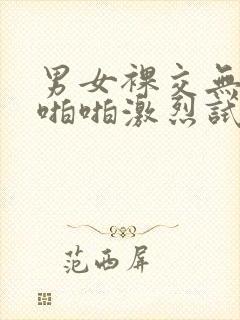 男女裸交無
啪啪激烈試
范西屏